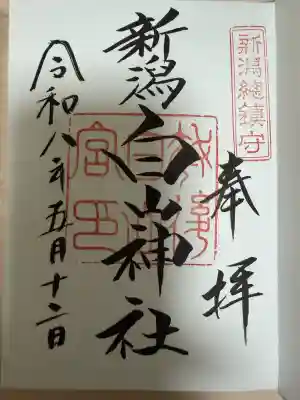 新潟總鎮守
奉拝
新潟白山神社
令和八年五月十二日